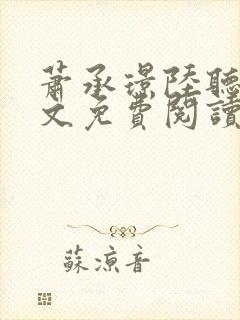 蕭承璟陸聽
文免費閱讀
蘇涼音